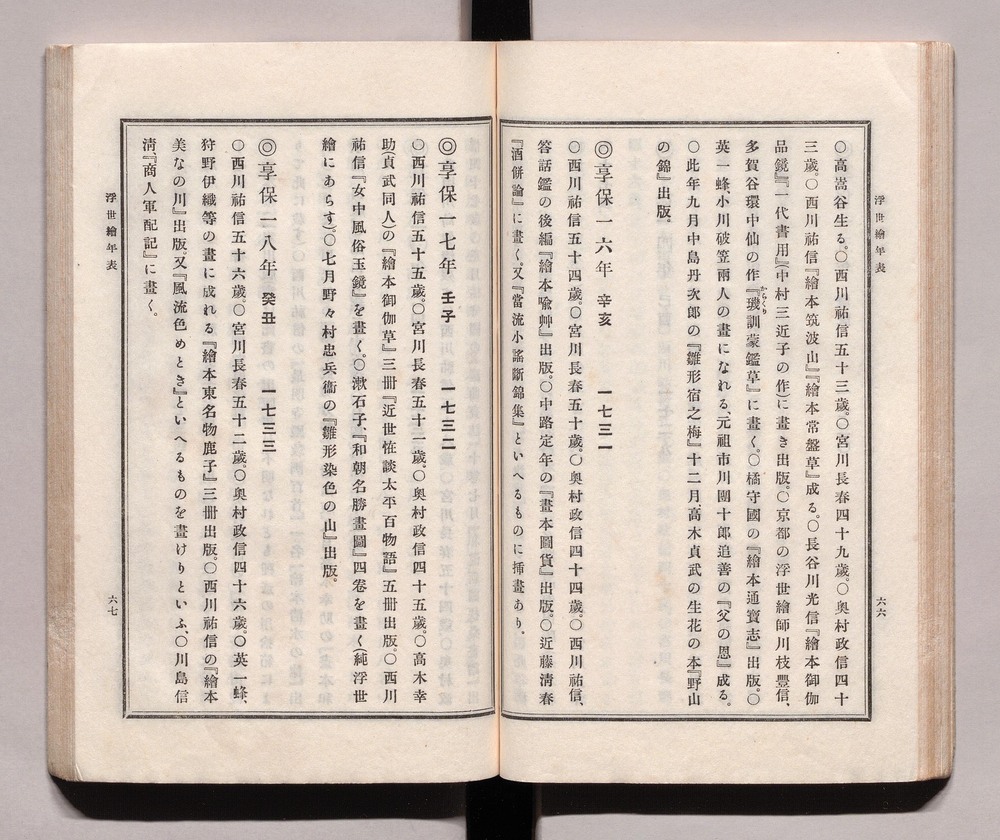 浮世繪年表
〇高嵩谷生る。〇西川祐信五十三歲。〇宮川長春四十九歲。〇奥村政信四十
三歲。〇西川祐信『繪本筑波山』『繪本常盤草』成る。〇長谷川光信『繪本御伽
品鏡』『一代書用』(中村三近子の作)に畫き出版。〇京都の浮世繪師川枝豊信、
多賀谷環中仙の作『璣訓蒙鑑草』に畫く。〇橘守國の『繪本通寶志』出版。〇
からくり
英一蜂、小川破笠兩人の畫になれる、元祖市川團十郎追善の『父の恩』成る。
〇此年九月中島丹次郎の『雛形宿之梅』十二月高木貞武の生花の本『野山
の錦』出版。
◎享保一六年 辛亥 一七三一
〇西川祐信五十四歲。〇宮川長春五十歲。〇奥村政信四十四歲〇西川祐信、
答話鑑の後編『繪本喩艸』出版。〇中路定年の『畫本圖貨』出版。〇近藤淸春
『酒餅論』に畫く。又『當流小謠斷錦集』といへるものに揷畫あり。
六六
◎享保一七年 壬子 一七三二
〇西川祐信五十五歲。〇宮川長春五十一歲。〇奥村政信四十五歲。〇高木幸
助貞武同人)の『繪本御伽草』三冊『近世恠談太平百物語』五冊出版。〇西川
祐信『女中風俗玉鏡』を畫く。〇漱石子、『和朝名勝畫圖』四卷を畫く(純浮世
繪にあらす)。〇七月野々村忠兵衞の『雛形染色の山』出版。
◎享保一八年 癸丑 一七三三
〇西川祐信五十六歲。〇宮川長春五十二歲。〇奥村政信四十六歲。〇英一蜂、
狩野伊織等の畫に成れる『繪本東名物鹿子』三冊出版。〇西川祐信の『繪本
美なの川』出版。又『風流色めとき』といへるものを畫けりといふ、〇川島信
淸『商人軍配記』に畫く。
浮世繪年表
六七